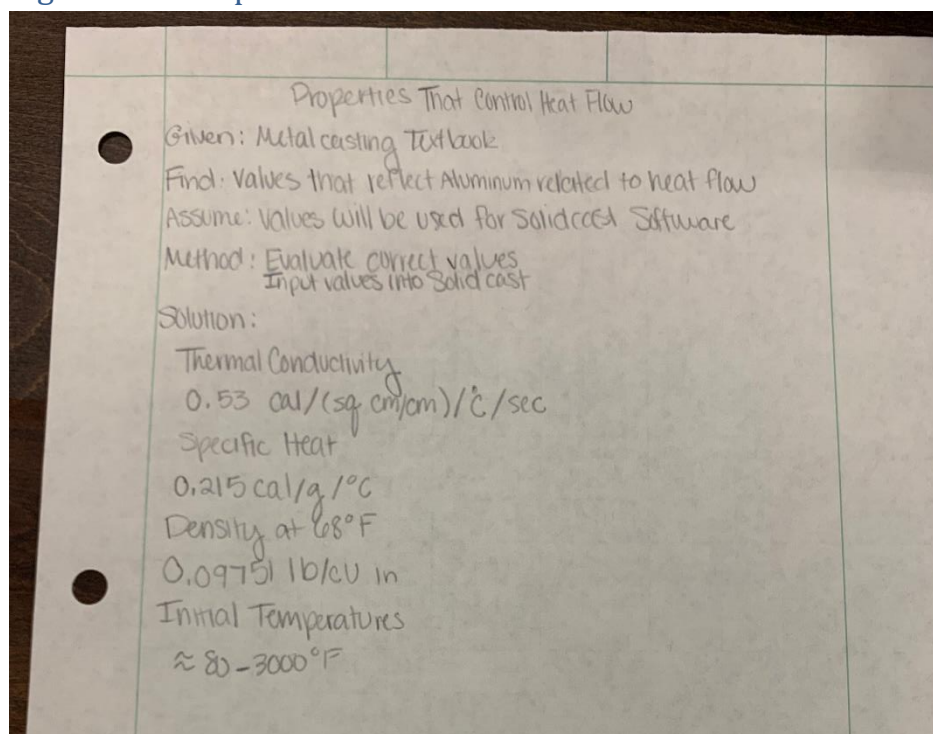 Properties That Control Heat Flow
Given: Metal casting Textbook
Find: Values that reflect Aluminum related to heat flow
Assume: Values will be used for Solidcast Software
Method: Evaluate correct values
Input values into Solid cast
Solution:
Thermal Conductivity
0.53 cal/(sq cm/cm)/°C/sec
Specific Heat
0.215 cal/g/°C
Density at 68°F
0.09751 lb/cu in
Initial Temperatures
≈ 80-3000°F